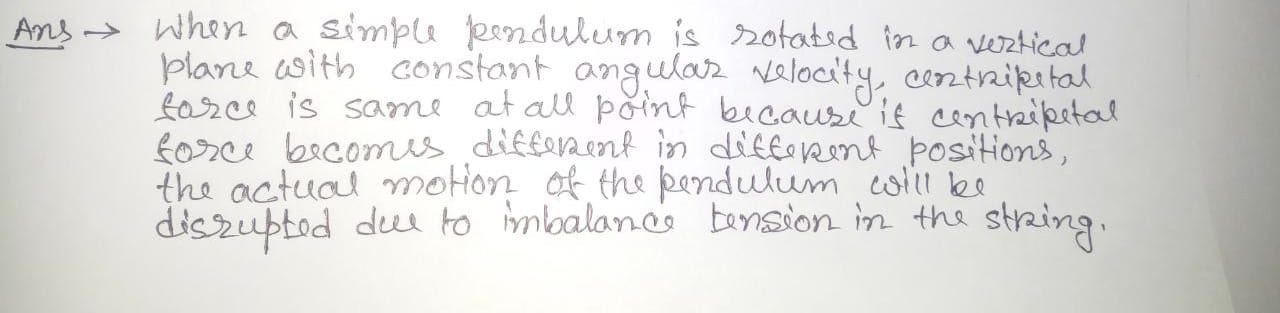 Ans → When a simple pendulum is rotated in a vertical
plane with constant angular velocity, centripetal
force is same at all point because if centripetal
force becomes different in different positions,
the actual motion of the pendulum will be
disrupted due to imbalance tension in the string.